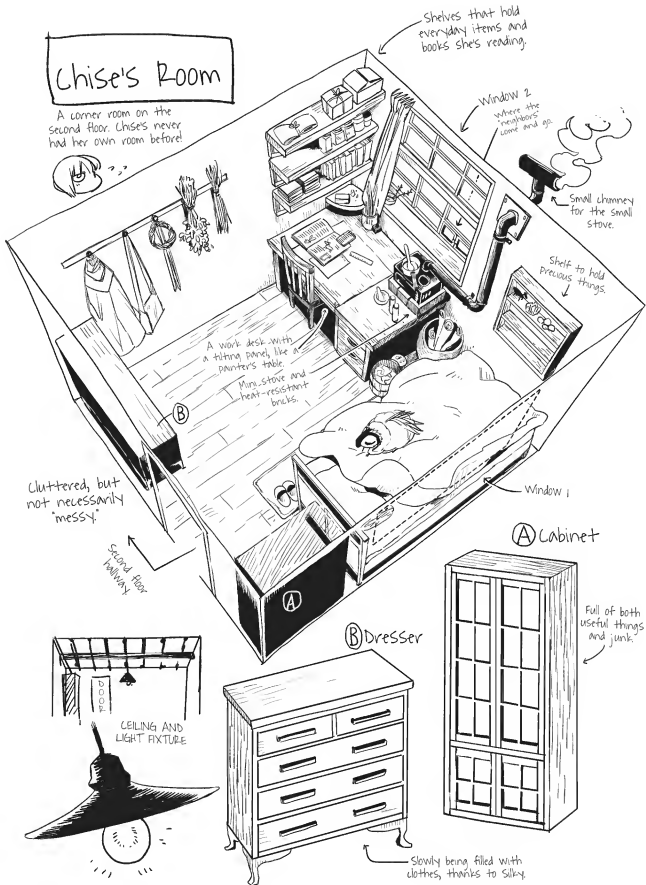 Chise's Room
A corner room on the
second floor. Chise's never
had her own room before!
Shelves that hold
everyday items and
books she's reading.
Window 2
Where the
"neighbors"
come and go.
Small chimney
for the small
stove.
Shelf to hold
precious things.
A work desk with
a tilting panel, like a
painter's table.
Mini-stove and
heat-resistant
bricks.
B
Cluttered, but
not necessarily
"messy."
Second floor
hallway.
Window 1
A
A Cabinet
Full of both
useful things
and junk.
B Dresser
DOOR
CEILING AND
LIGHT FIXTURE
Slowly being filled with
clothes, thanks to Silky.